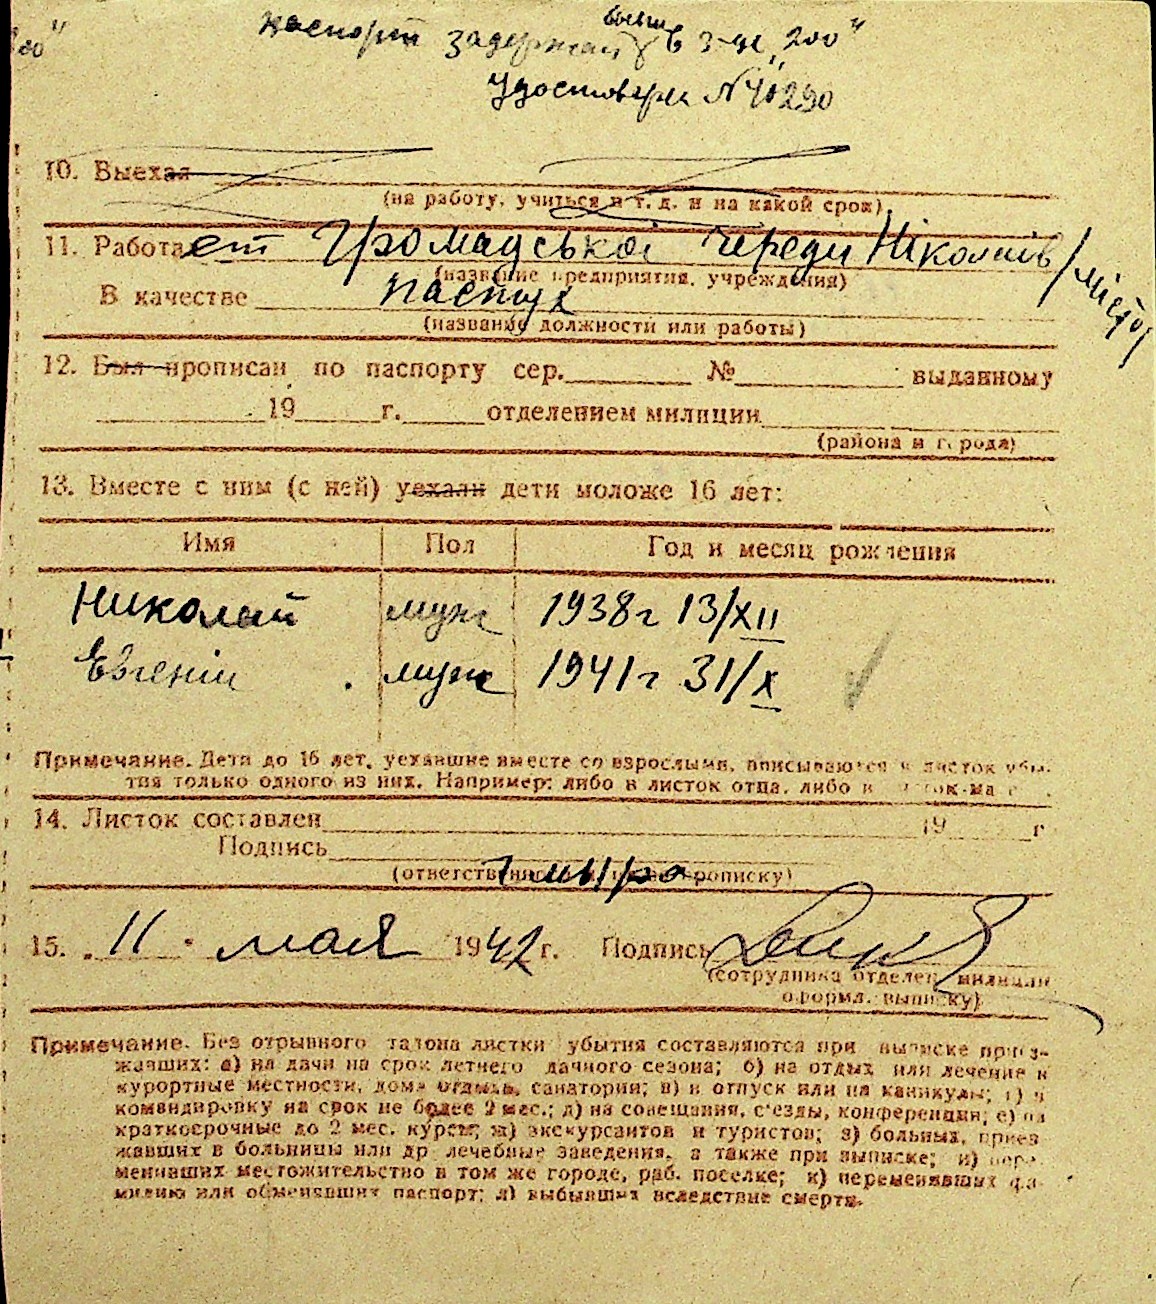 "200"
паспорт задержан в з-де "200"
Удостовер. №40290
10. Выехал
(на работу, учиться и т. д. и на какой срок)
11. Работает Громадської череди Ніколаїв/міста/
(название предприятия, учреждения)
В качестве пастух
(название должности или работы)
12. Был прописан по паспорту сер. № выданному
19 г. отделением милиции
(района и города)
13. Вместе с ним (с ней) уехали дети моложе 16 лет:
Имя Пол Год и месяц рождения
Николай муж 1938г 13/XII
Евгеній муж 1941г 31/X
Примечание. Дети до 16 лет, уехавшие вместе со взрослыми, вписываются в листок убы-
тия только одного из них. Например: либо в листок отца, либо в
14. Листок составлен 19 г
Подпись
(ответственного прописку)
15. 11 мая 1942 г. Подпись
(сотрудника отделен. милиции
оформл. выписку)
Примечание. Без отрывного талона листки убытия составляются при выписке приез-
жавших: а) на дачи на срок летнего дачного сезона; б) на отдых или лечение в
курортные местности, дома отдыха, санатории; в) в отпуск или на каникулы; г) в
командировку на срок не более 2 мес.; д) на совещания, с'езды, конференции; е) на
краткосрочные до 2 мес. курсы; ж) экскурсантов и туристов; з) больных, приез
жавших в больницы или др. лечебные заведения, а также при выписке; и) пере-
менивших местожительство в том же городе, раб. поселке; к) переменивших фа-
милию или обменявших паспорт; л) выбывших вследствие смерти.